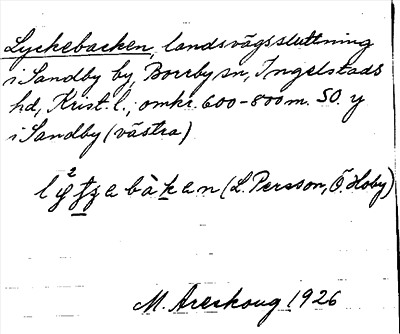 Lyckebacken, landsvägssluttning
i Sandby by, Borrby sn, Ingelstads
hd, Krist. l., omkr. 600-800 m. SO. y
i Sandby (västra)
(L. Persson, Ö. Hoby)
M. Areskoug 1926